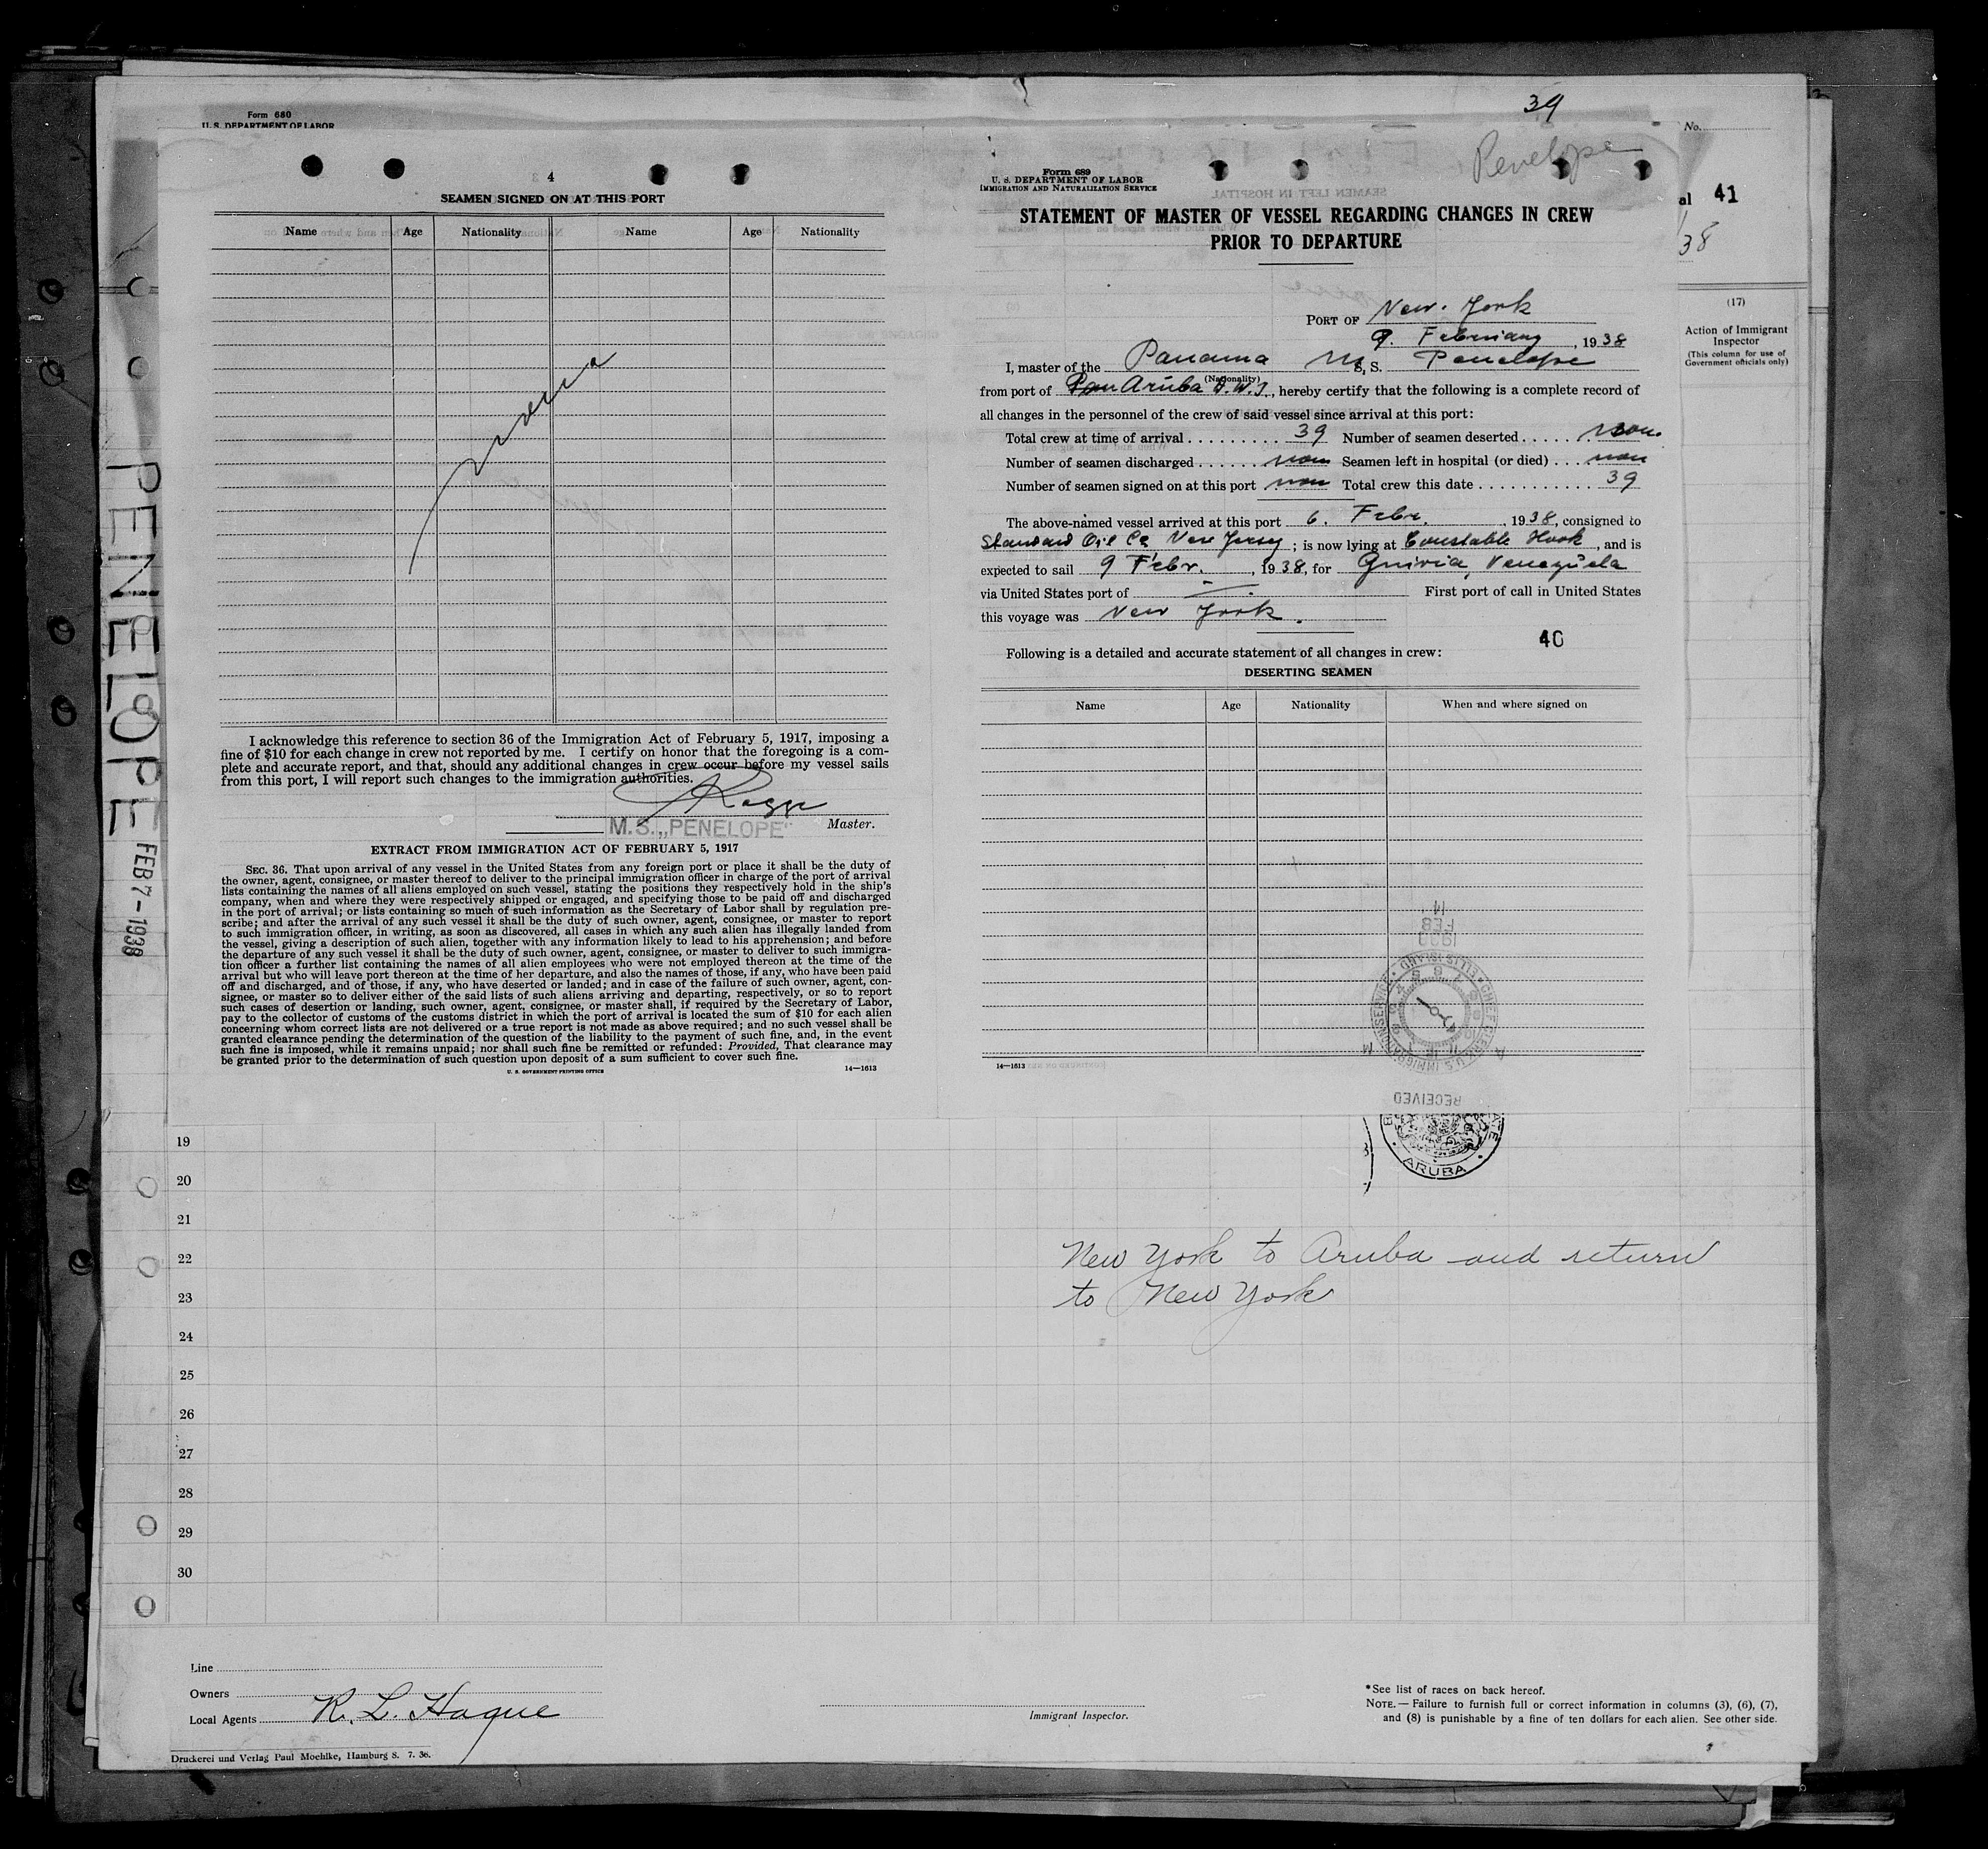 Form 680
U. S. DEPARTMENT OF LABOR
4
SEAMEN SIGNED ON AT THIS PORT
Name Age Nationality Name Age Nationality
I acknowledge this reference to section 36 of the Immigration Act of February 5, 1917, imposing a
fine of $10 for each change in crew not reported by me. I certify on honor that the foregoing is a com-
plete and accurate report, and that, should any additional changes in crew occur before my vessel sails
from this port, I will report such changes to the immigration authorities.
M.S. „PENELOPE" Master.
EXTRACT FROM IMMIGRATION ACT OF FEBRUARY 5, 1917
SEC. 36. That upon arrival of any vessel in the United States from any foreign port or place it shall be the duty of
the owner, agent, consignee, or master thereof to deliver to the principal immigration officer in charge of the port of arrival
lists containing the names of all aliens employed on such vessel, stating the positions they respectively hold in the ship's
company, when and where they were respectively shipped or engaged, and specifying those to be paid off and discharged
in the port of arrival; or lists containing so much of such information as the Secretary of Labor shall by regulation pre-
scribe; and after the arrival of any such vessel it shall be the duty of such owner, agent, consignee, or master to report
to such immigration officer, in writing, as soon as discovered, all cases in which any such alien has illegally landed from
the vessel, giving a description of such alien, together with any information likely to lead to his apprehension; and before
the departure of any such vessel it shall be the duty of such owner, agent, consignee, or master to deliver to such immigra-
tion officer a further list containing the names of all alien employees who were not employed thereon at the time of the
arrival but who will leave port thereon at the time of her departure, and also the names of those, if any, who have been paid
off and discharged, and of those, if any, who have deserted or landed; and in case of the failure of such owner, agent, con-
signee, or master so to deliver either of the said lists of such aliens arriving and departing, respectively, or so to report
such cases of desertion or landing, such owner, agent, consignee, or master shall, if required by the Secretary of Labor,
pay to the collector of customs of the customs district in which the port of arrival is located the sum of $10 for each alien
concerning whom correct lists are not delivered or a true report is not made as above required; and no such vessel shall be
granted clearance pending the determination of the question of the liability to the payment of such fine, and, in the event
such fine is imposed, while it remains unpaid; nor shall such fine be remitted or refunded: Provided, That clearance may
be granted prior to the determination of such question upon deposit of a sum sufficient to cover such fine.
U. S. GOVERNMENT PRINTING OFFICE 14—1613
39
Penelope
Form 689
U. S. DEPARTMENT OF LABOR
IMMIGRATION AND NATURALIZATION SERVICE
STATEMENT OF MASTER OF VESSEL REGARDING CHANGES IN CREW
PRIOR TO DEPARTURE
PORT OF New. York
9. February, 1938
I, master of the Panama M S, S. Penelope
(Nationality)
from port of Aruba D.W.I., hereby certify that the following is a complete record of
all changes in the personnel of the crew of said vessel since arrival at this port:
Total crew at time of arrival ......... 39 Number of seamen deserted ..... non.
Number of seamen discharged ...... non Seamen left in hospital (or died) ... non
Number of seamen signed on at this port non Total crew this date ........... 39
The above-named vessel arrived at this port 6. Febr. , 1938, consigned to
Standard Oil Co New Jersey; is now lying at Constable Hook, and is
expected to sail 9 Febr., 1938, for Guiria, Venezuela
via United States port of —. First port of call in United States
this voyage was New York.
40
Following is a detailed and accurate statement of all changes in crew:
DESERTING SEAMEN
Name Age Nationality When and where signed on
14 FEB
CHIEF CLERK U.S. IMMIGRATION SERVICE ELLIS ISLAND
RECEIVED
14—1613
No.
al 41
38
(17)
Action of Immigrant
Inspector
(This column for use of
Government officials only)
PENELOPE FEB 7-1938
ARUBA
19
20
21
22
23
24
25
26
27
28
29
30
New York to Aruba and return
to New York
Line
Owners
Local Agents R. L. Hague
Immigrant Inspector.
*See list of races on back hereof.
NOTE.— Failure to furnish full or correct information in columns (3), (6), (7),
and (8) is punishable by a fine of ten dollars for each alien. See other side.
Druckerei und Verlag Paul Moehlke, Hamburg 8. 7. 36.